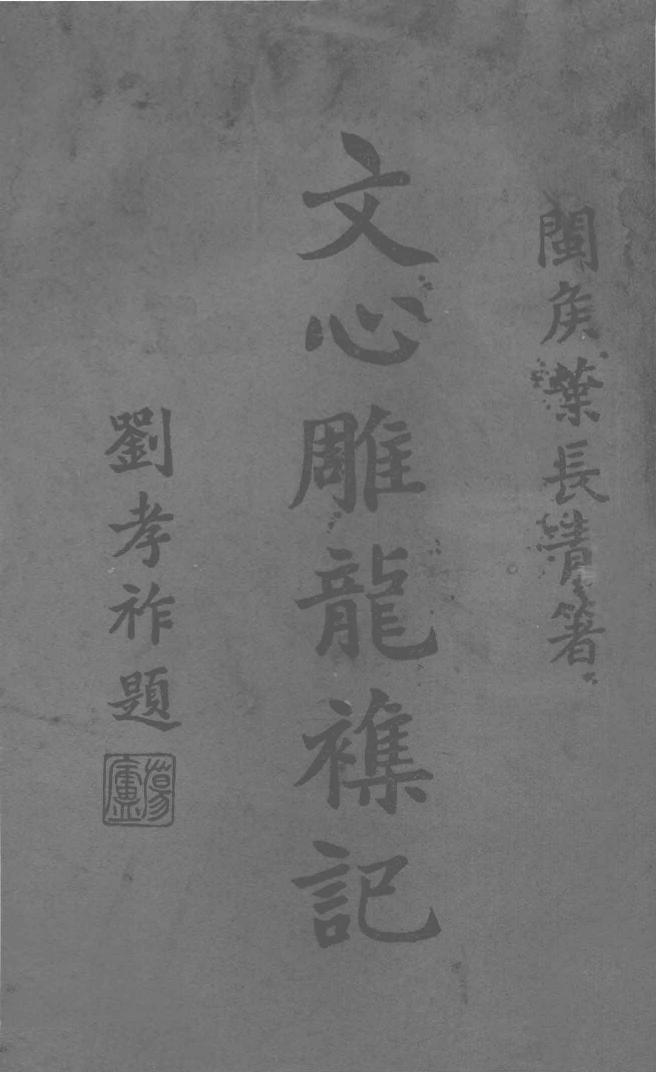 閩侯葉長青箸
文心雕龍襍記
劉孝祚題